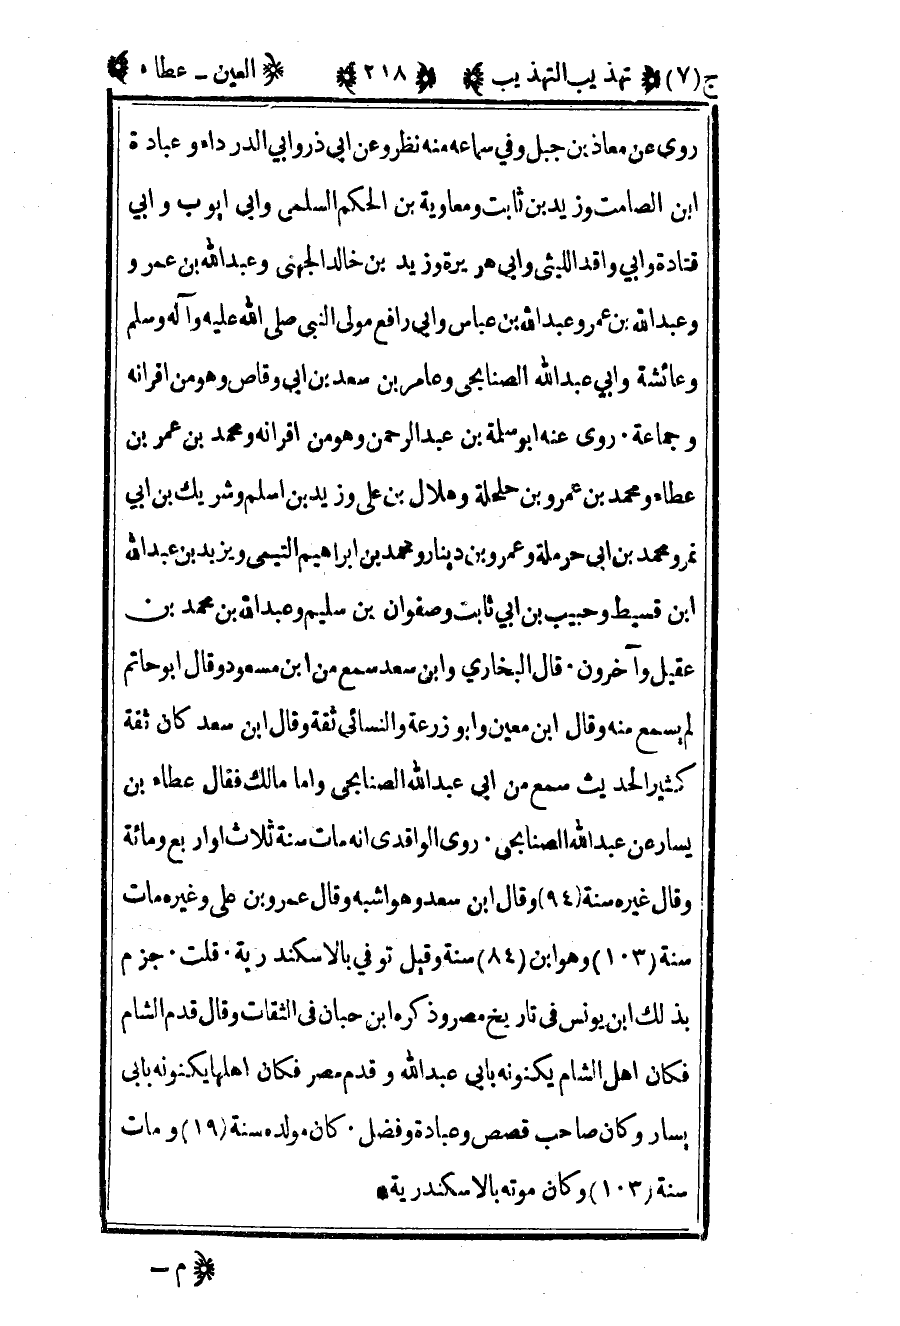 ج (٧) ﴿ تهذيب التهذيب ﴾ ﴿ ٢١٨ ﴾ ﴿ العين - عطاء ﴾
روى عن معاذ بن جبل وفي سماعه منه نظر وعن ابي ذر وابي الدرداء وعبادة
ابن الصامت وزيد بن ثابت ومعاوية بن الحكم السلمى وابي ايوب وابي
قتادة وابي واقد الليثى وابي هريرة وزيد بن خالد الجهنى وعبد الله بن عمر و
وعبد الله بن عمر وعبد الله بن عباس وابي رافع مولى النبي صلى الله عليه وآله وسلم
وعائشة وابي عبد الله الصنابحى وعامر بن سعد بن ابي وقاص وهو من اقرانه
وجماعة · روى عنه ابو سلمة بن عبد الرحمن وهو من اقرانه ومحمد بن عمر بن
عطاء ومحمد بن عمرو بن حلحلة وهلال بن على وزيد بن اسلم وشريك بن ابي
نمر ومحمد بن ابى حرملة وعمرو بن دينار ومحمد بن ابراهيم التيمى ويزيد بن عبد الله
ابن قسيط وحبيب بن ابي ثابت وصفوان بن سليم وعبد الله بن محمد بن
عقيل وآخرون · قال البخاري وابن سعد سمع من ابن مسعود وقال ابو حاتم
لم يسمع منه وقال ابن معين وابو زرعة والنسائى ثقة وقال ابن سعد كان ثقة
كثير الحديث سمع من ابي عبد الله الصنابحى واما مالك فقال عطاء بن
يسار عن عبد الله الصنابحي · روى الواقدى انه مات سنة ثلاث او اربع ومائة
وقال غيره سنة (٩٤) وقال ابن سعد وهو اشبه وقال عمرو بن على وغيره مات
سنة (١٠٣) وهو ابن (٨٤) سنة وقيل توفي بالاسكندرية · قلت · جزم
بذلك ابن يونس فى تاريخ مصر وذكره ابن حبان فى الثقات وقال قدم الشام
فكان اهل الشام يكنونه بابي عبد الله وقدم مصر فكان اهلها يكنونه بابى
يسار وكان صاحب قصص وعبادة وفضل · كان مولده سنة (١٩) ومات
سنة (١٠٣) وكان موته بالاسكندرية *
﴿ م -